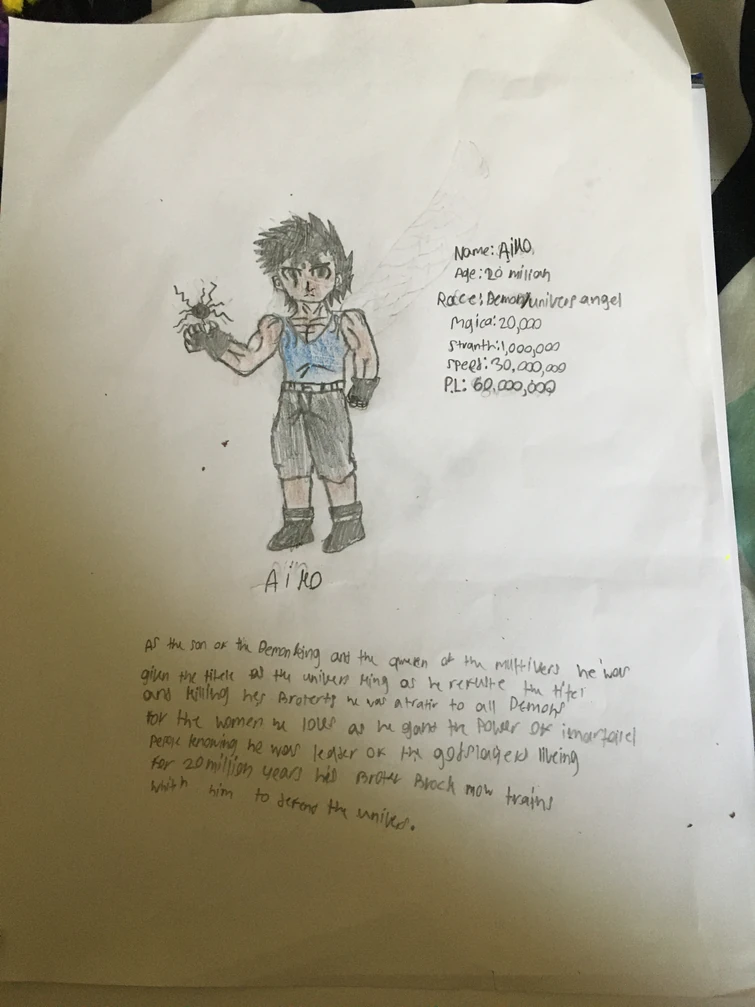 Name: AiKO
Age: 20 million
Racce: Demon/univers angel
Mgica: 20,000
Stranth: 1,000,000
Speed: 30,000,000
P.L: 60,000,000
AiKO
As the son of the Demon king and the queen of the multivers he was
given the titele as the univers king as he refuste the titel
and killing hes Broterts he was atratir to all Demons
for the women he loves as he gant the Power of imartailel
People knowing he was leader of the godslagers liveing
for 20 million years his Broter Brock now trains
whith him to defend the univers.